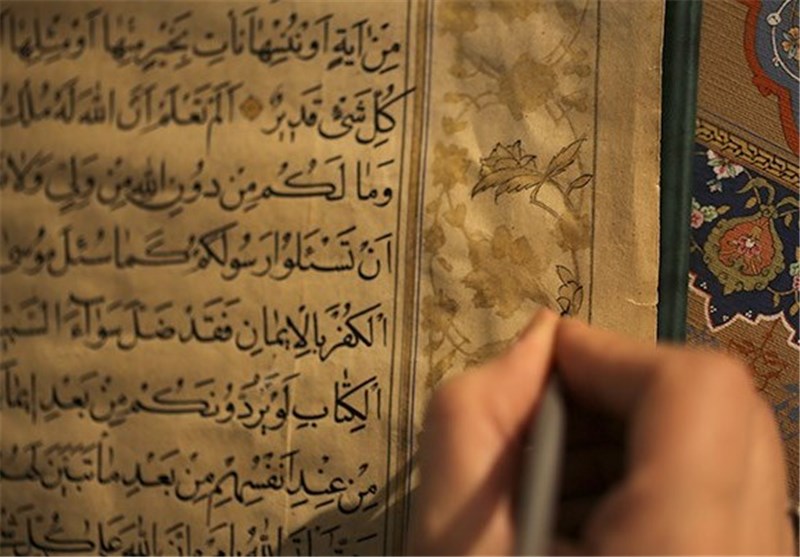 مِنْ اٰيَةٍ اَوْ نُنْسِهَا نَأْتِ بِخَيْرٍ مِنْهَا اَوْ مِثْلِهَا
كُلِّ شَىْءٍ قَدِيرٌ اَلَمْ تَعْلَمْ اَنَّ اللهَ لَهُ مُلْكُ
وَمَا لَكُمْ مِنْ دُونِ اللهِ مِنْ وَلِىٍّ وَلَا
اَنْ تَسْئَلُوا رَسُولَكُمْ كَمَا سُئِلَ مُوسٰى
الْكُفْرَ بِالْاِيمَانِ فَقَدْ ضَلَّ سَوَآءَ
الْكِتَابِ لَوْ يَرُدُّونَكُمْ مِنْ بَعْدِ
مِنْ عِنْدِ اَنْفُسِهِمْ مِنْ بَعْدِ مَا تَبَيَّنَ
اللهَ عَلٰى كُلِّ